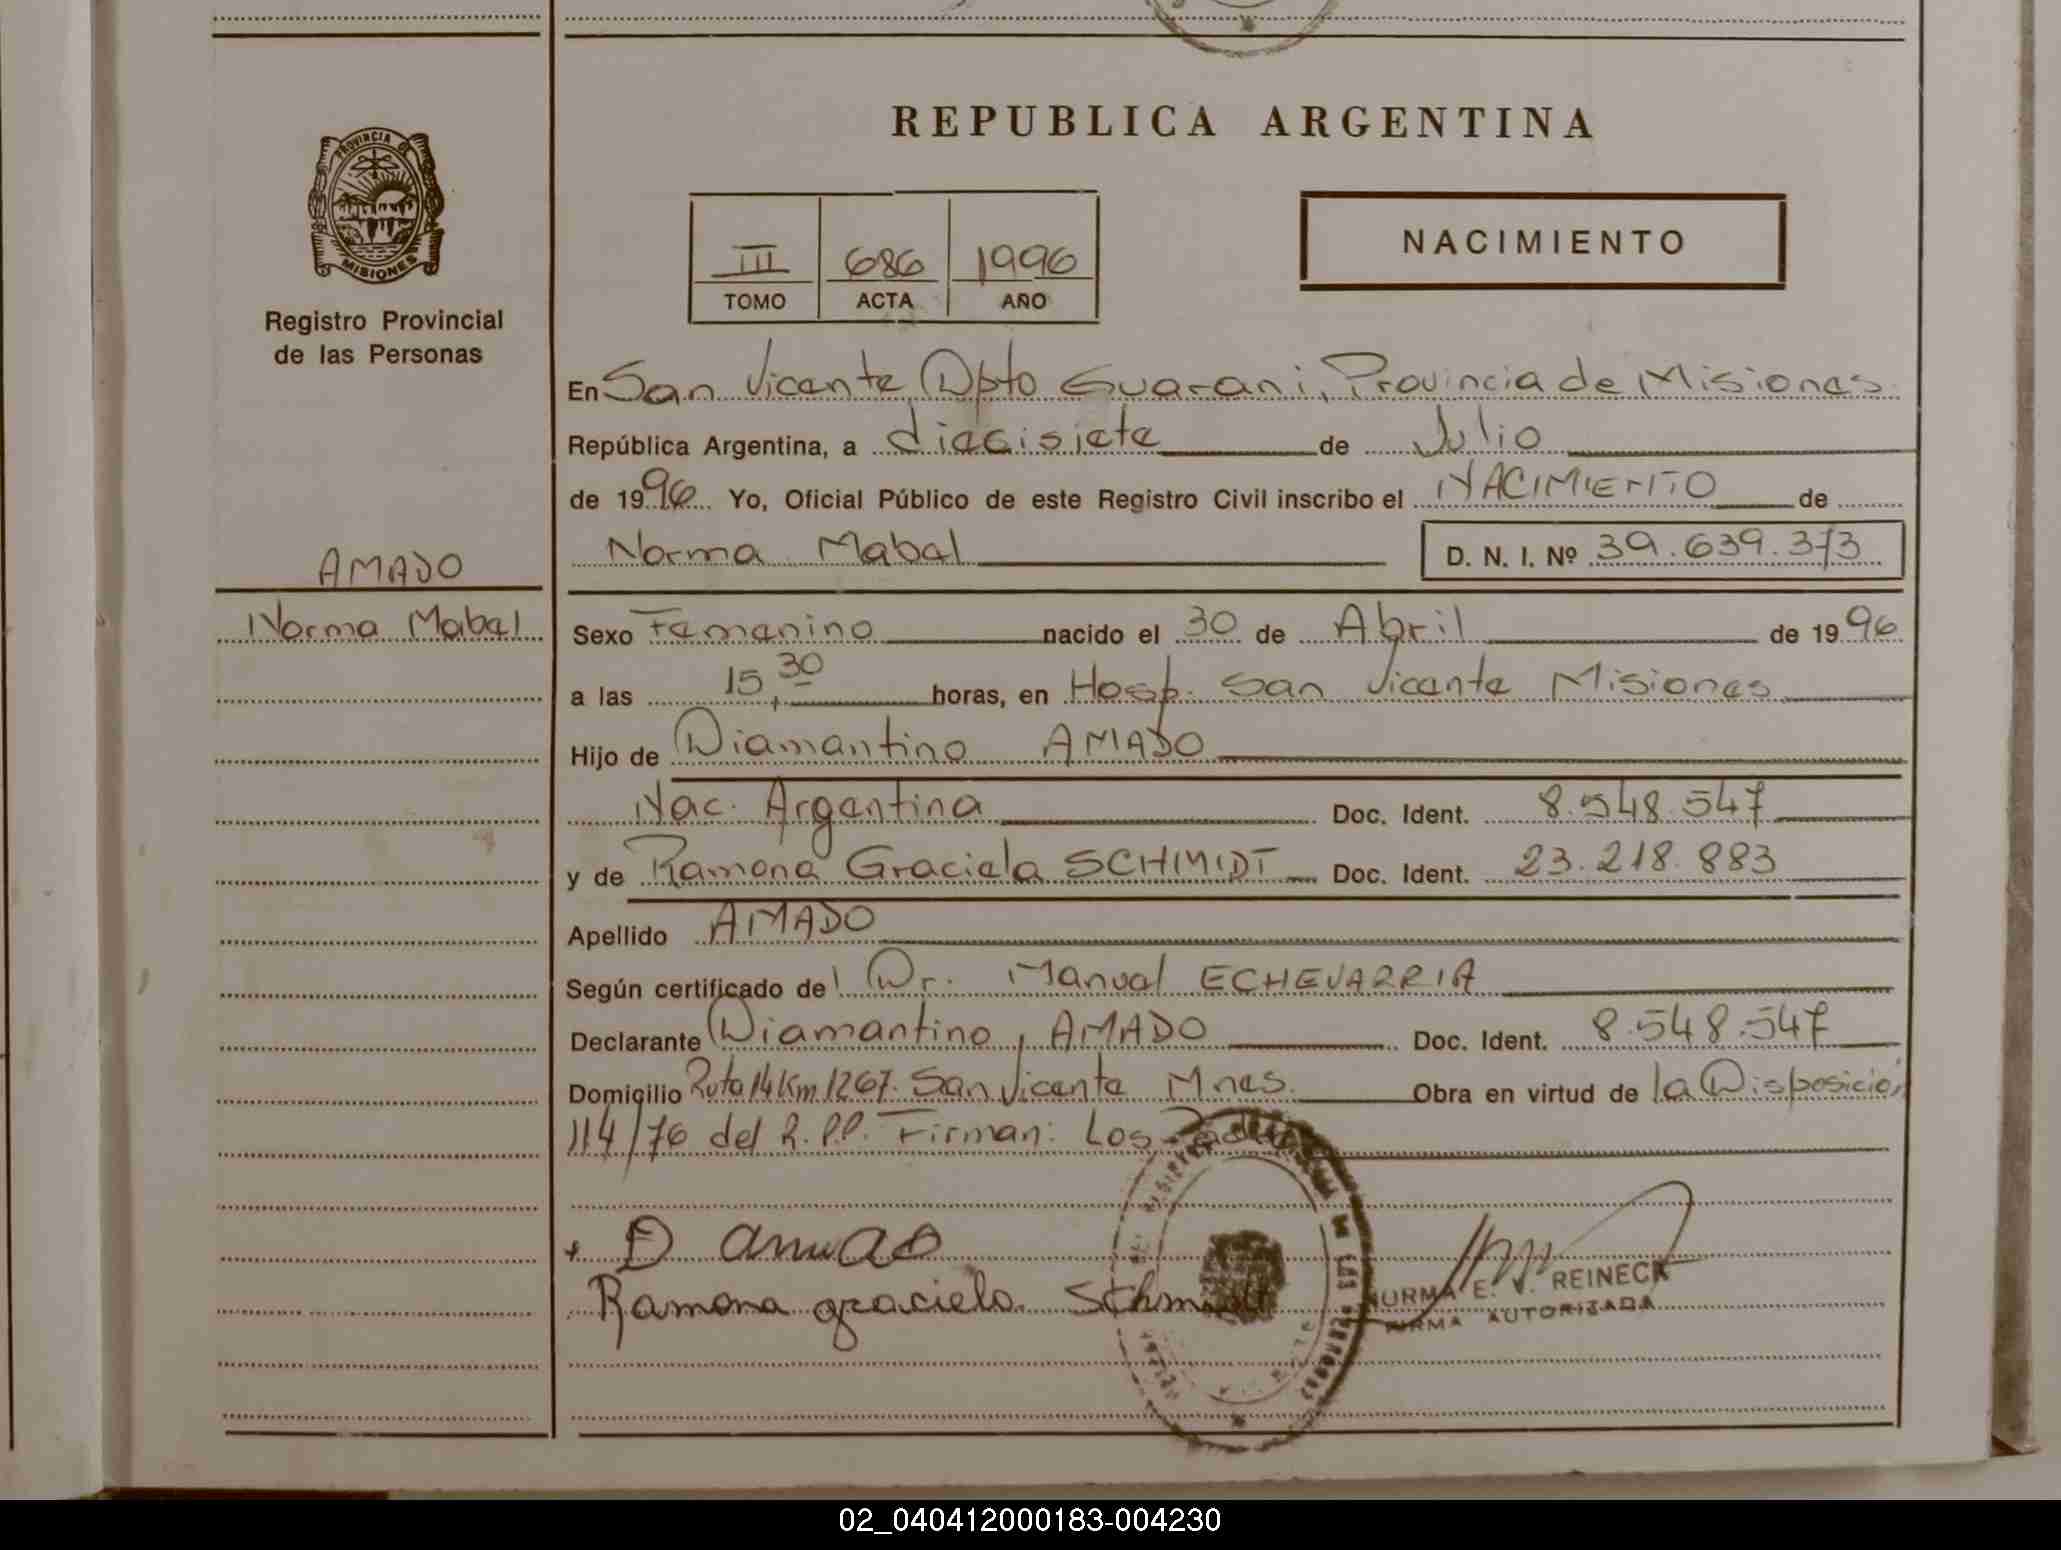 REPUBLICA ARGENTINA
PROVINCIA DE
MISIONES
Registro Provincial
de las Personas
III 686 1996
TOMO ACTA AÑO
NACIMIENTO
En San Vicente, Dpto Guarani, Provincia de Misiones
República Argentina, a diecisiete de Julio
de 1996 Yo, Oficial Público de este Registro Civil inscribo el NACIMIENTO de
Norma Mabel D. N. I. Nº 39.639.373
AMADO
Norma Mabel
Sexo Femenino nacido el 30 de Abril de 1996
a las 15,30 horas, en Hosp. San Vicente Misiones
Hijo de Diamantino AMADO
Nac. Argentina Doc. Ident. 8.548.547
y de Ramona Graciela SCHMIDT Doc. Ident. 23.218.883
Apellido AMADO
Según certificado de Dr. Manuel ECHEVARRIA
Declarante Diamantino, AMADO Doc. Ident. 8.548.547
Domicilio Ruta 14 Km 1267. San Vicente Mnes. Obra en virtud de la Disposición
114/76 del R.P.P. Firman: Los
D Amado
Ramona graciela Schmidt
NORMA E. V. REINECK
FIRMA AUTORIZADA
02_040412000183-004230